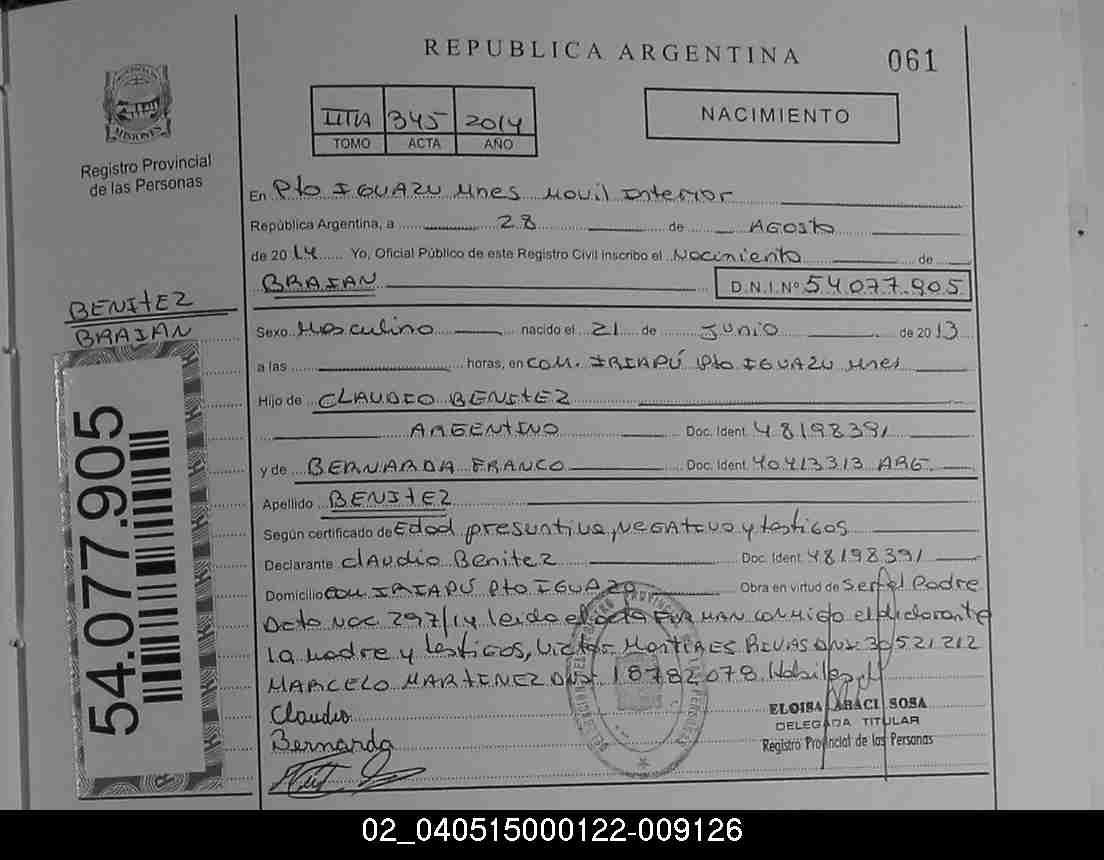 REPUBLICA ARGENTINA
061
MISIONES
Registro Provincial
de las Personas
345 2014
TOMO ACTA AÑO
NACIMIENTO
En Pto IGUAZU Mnes Movil Interior
República Argentina, a 28 de AGOSto
de 2014 Yo, Oficial Público de este Registro Civil inscribo el Nacimiento de
BRAIAN D.N.I. Nº 54.077.905
BENITEZ
BRAIAN
Sexo Masculino nacido el 21 de Junio de 2013
a las horas, en COM. IRIAPÚ Pto IGUAZU Mnes
Hijo de CLAUDIO BENITEZ
ARGENTINO Doc. Ident. 48198391
y de BERNARDA FRANCO Doc. Ident. 40413313 ARG.
Apellido BENITEZ
Según certificado de Edad presuntiva, NEGATIVO y testigos
Declarante Claudio Benitez Doc. Ident. 48198391
Domicilio com IRIAPÚ Pto IGUAZU Obra en virtud de Ser el Padre
297/14 leido el acta FIRMAN conmigo el declarante
la madre y testigos, Victor RIVAS DNI 30521212
MARCELO MARTINEZ DNI 18782078
54.077.905
Claudio
Bernarda
ELOISA ARACI SOSA
DELEGADA TITULAR
Registro Provincial de las Personas
02_040515000122-009126